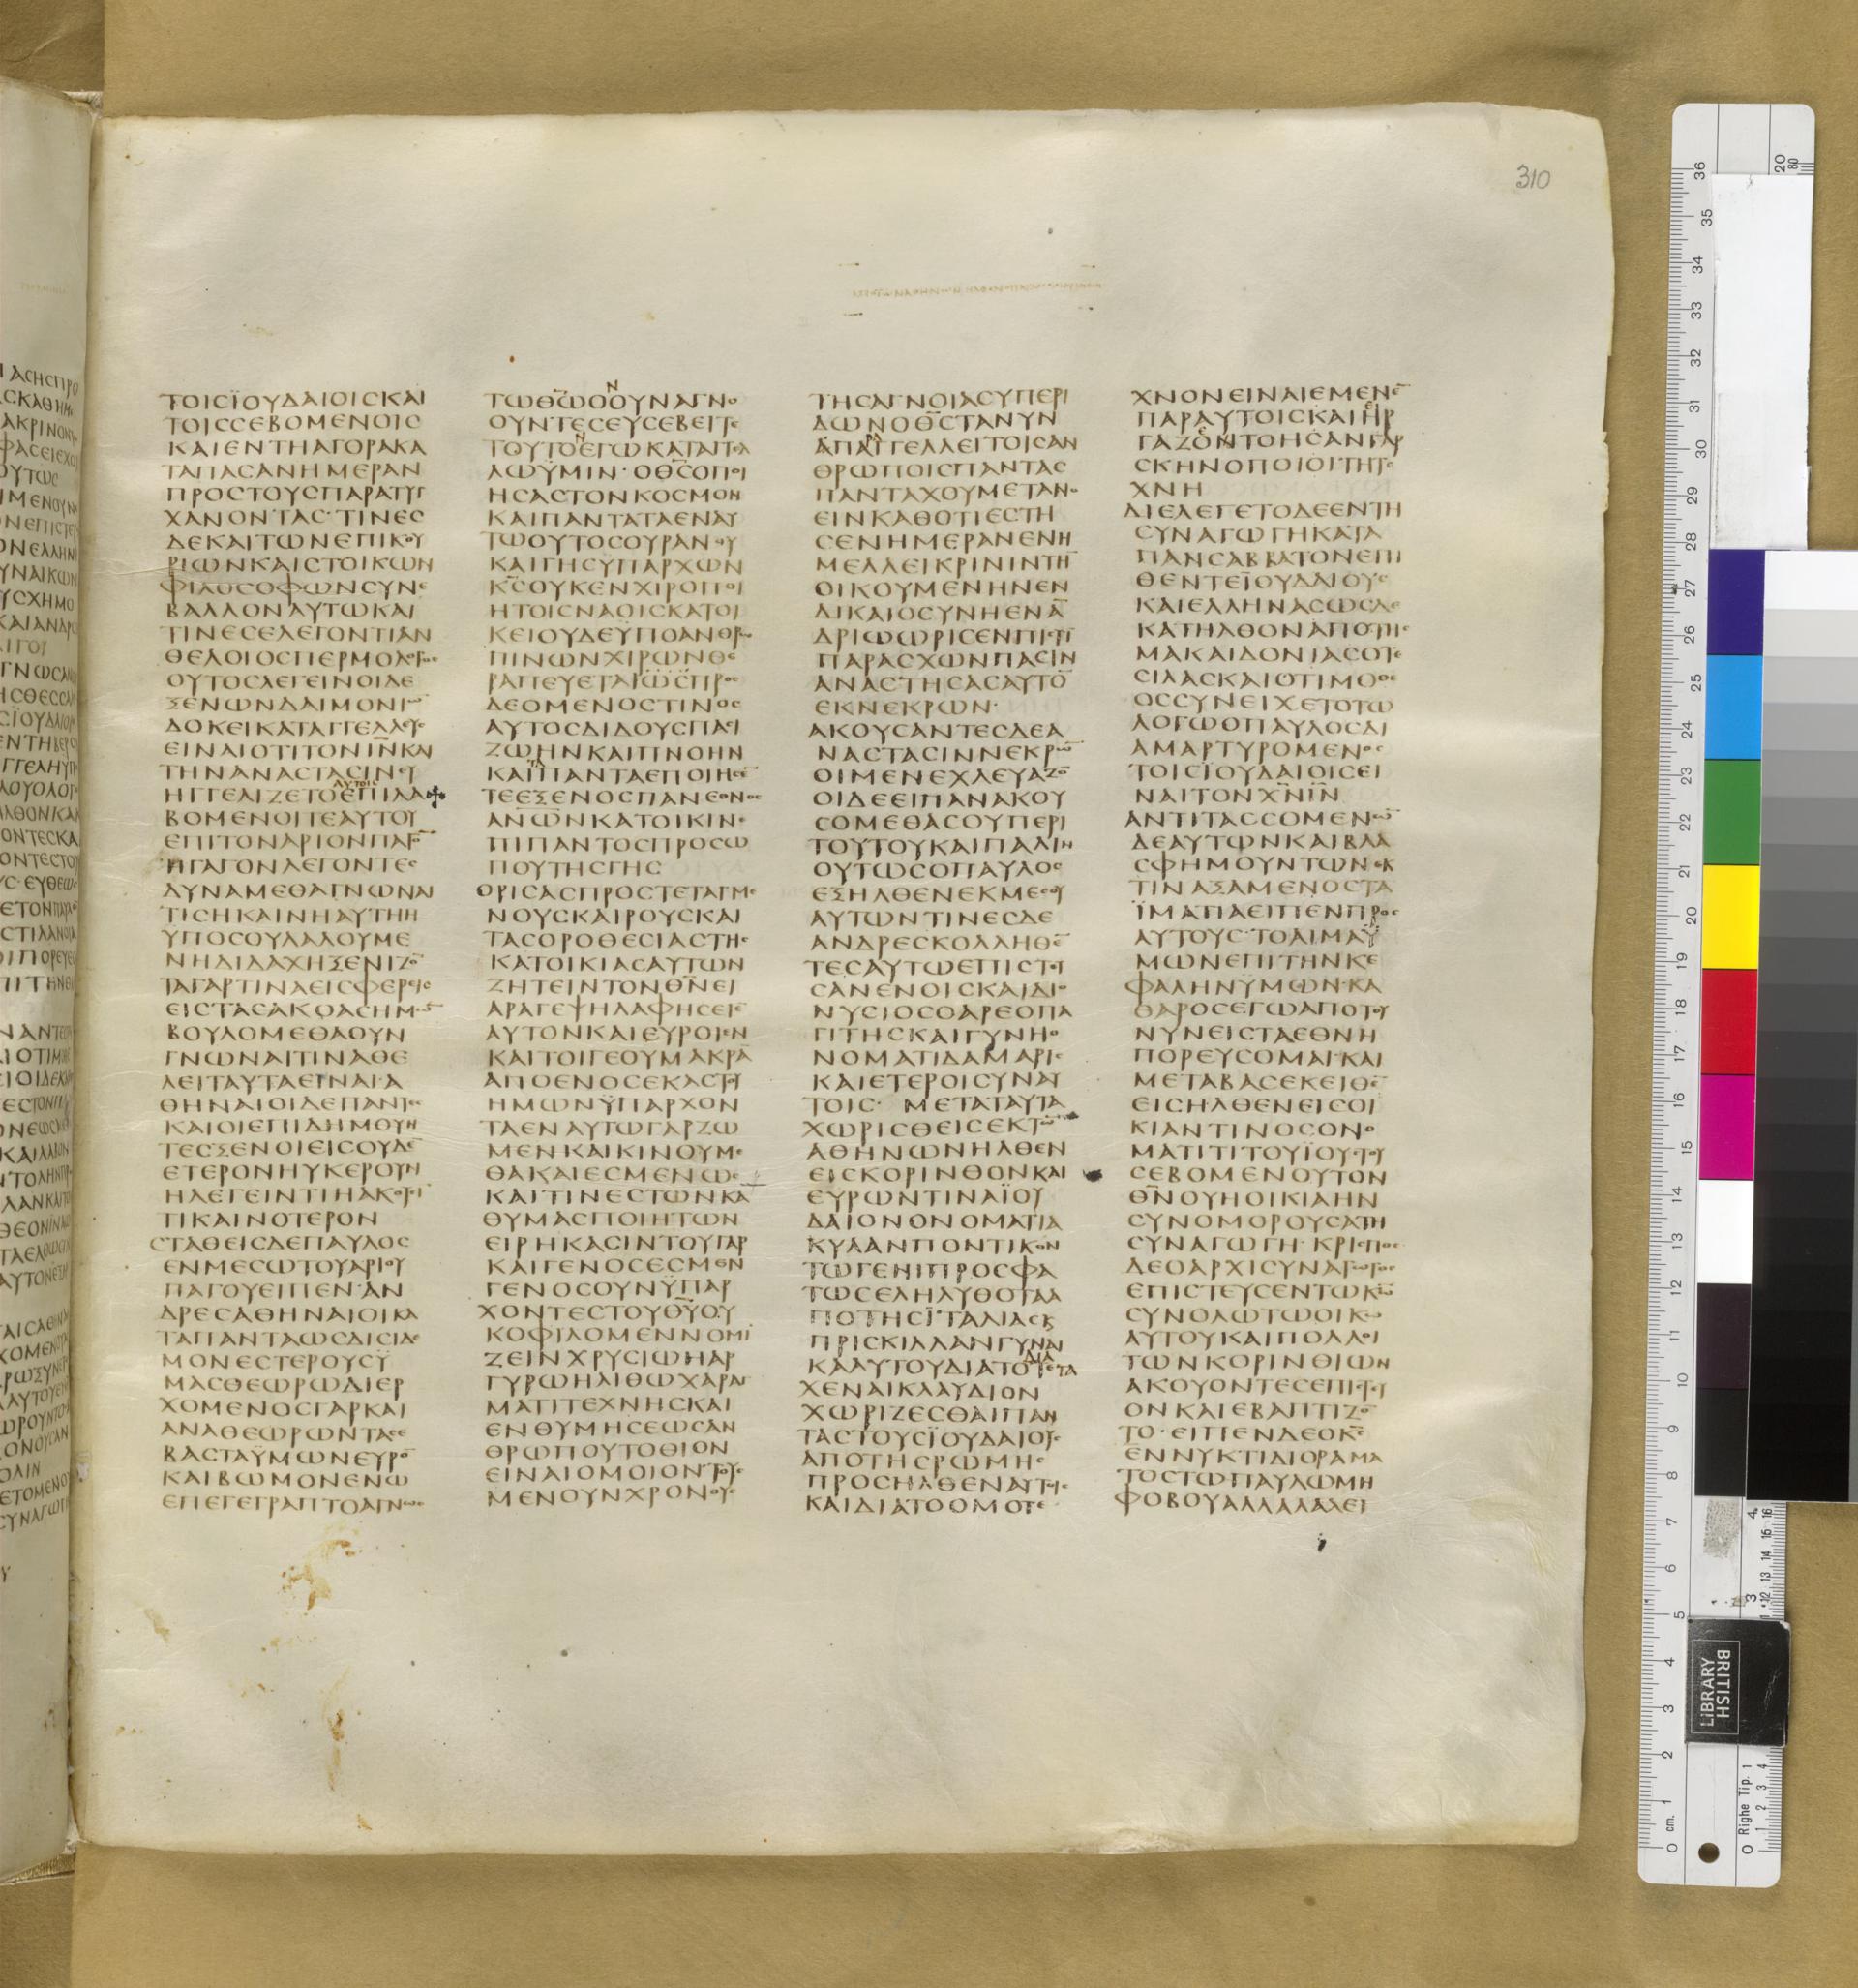 310
ΤΟΙCΪΟΥΔΑΙΟΙCΚΑΙ
ΤΟΙCCΕΒΟΜΕΝΟΙC
ΚΑΙΕΝΤΗΑΓΟΡΑΚΑ
ΤΑΠΑCΑΝΗΜΕΡΑΝ
ΠΡΟCΤΟΥCΠΑΡΑΤΥΓ
ΧΑΝΟΝΤΑC·ΤΙΝΕC
ΔΕΚΑΙΤΩΝΕΠΙΚΟΥ
ΡΙΩΝΚΑΙCΤΟΙΚΩΝ
ΦΙΛΟCΟΦΩΝCΥΝΕ
ΒΑΛΛΟΝΑΥΤΩΚΑΙ
ΤΙΝΕCΕΛΕΓΟΝΤΙΑΝ
ΘΕΛΟΙΟCΠΕΡΜΟΛΟΓΟC
ΟΥΤΟCΛΕΓΕΙΝΟΙΔΕ
ΞΕΝΩΝΔΑΙΜΟΝΙΩ̅
ΔΟΚΕΙΚΑΤΑΓΓΕΛΕΥC
ΕΙΝΑΙΟΤΙΤΟΝΙ̅Ν̅ΚΑΙ
ΤΗΝΑΝΑCΤΑCΙΝΕΥ
ΗΓΓΕΛΙΖΕΤΟΕΠΙΛΑ
ΒΟΜΕΝΟΙΓΕΑΥΤΟΥ
ΕΠΙΤΟΝΑΡΙΟΝΠΑΓΟ̅
ΗΓΑΓΟΝΛΕΓΟΝΤΕC
ΔΥΝΑΜΕΘΑΓΝΩΝΑΙ
ΤΙCΗΚΑΙΝΗΑΥΤΗΗ
ΥΠΟCΟΥΛΑΛΟΥΜΕ
ΝΗΔΙΔΑΧΗΞΕΝΙΖΟ̅
ΤΑΓΑΡΤΙΝΑΕΙCΦΕΡΕΙC
ΕΙCΤΑCΑΚΟΑCΗΜΩ̅
ΒΟΥΛΟΜΕΘΑΟΥΝ
ΓΝΩΝΑΙΤΙΝΑΘΕ
ΛΕΙΤΑΥΤΑΕΙΝΑΙ·Α
ΘΗΝΑΙΟΙΔΕΠΑΝΤΕC
ΚΑΙΟΙΕΠΙΔΗΜΟΥΝ
ΤΕCΞΕΝΟΙΕΙCΟΥΔΕ̅
ΕΤΕΡΟΝΗΥΚΕΡΟΥΝ
ΗΛΕΓΕΙΝΤΙΗΑΚΟΥΕΙ
ΤΙΚΑΙΝΟΤΕΡΟΝ
CΤΑΘΕΙCΔΕΠΑΥΛΟC
ΕΝΜΕCΩΤΟΥΑΡΙΟΥ
ΠΑΓΟΥΕΙΠΕΝ·ΑΝ
ΔΡΕCΑΘΗΝΑΙΟΙΚΑ
ΤΑΠΑΝΤΑΩCΔΙCΙΔΑΙ
ΜΟΝΕCΤΕΡΟΥCΫ
ΜΑCΘΕΩΡΩΔΙΕΡ
ΧΟΜΕΝΟCΓΑΡΚΑΙ
ΑΝΑΘΕΩΡΩΝΤΑCΕ
ΒΑCΤΑΫΜΩΝΕΥΡΟ̅
ΚΑΙΒΩΜΟΝΕΝΩ
ΕΠΕΓΕΓΡΑΠΤΟΑΓΝΩC
ΤΩΘ̅Ω̅ΟΟΥΝΑΓΝΟ
ΟΥΝΤΕCΕΥCΕΒΕΙΤΕ
ΤΟΥΤΟΕΓΩΚΑΤΑΓΓΕΛ
ΛΩΫΜΙΝ·ΟΘ̅C̅ΟΠΟΙ
ΗCΑCΤΟΝΚΟCΜΟΝ
ΚΑΙΠΑΝΤΑΤΑΕΝΑΥ
ΤΩΟΥΤΟCΟΥΡΑΝΟΥ
ΚΑΙΓΗCΥΠΑΡΧΩΝ
Κ̅C̅ΟΥΚΕΝΧΙΡΟΠΟΙ
ΗΤΟΙCΝΑΟΙCΚΑΤΟΙ
ΚΕΙΟΥΔΕΫΠΟΑΝΘΡΩ
ΠΙΝΩΝΧΙΡΩΝΘΕ
ΡΑΠΕΥΕΤΑΙΩCΠΡΟC
ΔΕΟΜΕΝΟCΤΙΝΟC
ΑΥΤΟCΔΙΔΟΥCΠΑCΙ
ΖΩΗΝΚΑΙΠΝΟΗΝ
ΚΑΙΠΑΝΤΑΕΠΟΙΗCΕ̅
ΤΕΕΞΕΝΟCΠΑΝΕΘΝΟC
ΑΝΩ̅Ν̅ΚΑΤΟΙΚΙΝΕ
ΠΙΠΑΝΤΟCΠΡΟCΩ
ΠΟΥΤΗCΓΗC
ΟΡΙCΑCΠΡΟCΤΕΤΑΓΜΕ
ΝΟΥCΚΑΙΡΟΥCΚΑΙ
ΤΑCΟΡΟΘΕCΙΑCΤΗC
ΚΑΤΟΙΚΙΑCΑΥΤΩΝ
ΖΗΤΕΙΝΤΟΝΘ̅Ν̅ΕΙ
ΑΡΑΓΕΨΗΛΑΦΗCΕΙΕ
ΑΥΤΟΝΚΑΙΕΥΡΟΙΕΝ
ΚΑΙΤΟΙΓΕΟΥΜΑΚΡΑ̅
ΑΠΟΕΝΟCΕΚΑCΤΟΥ
ΗΜΩΝΫΠΑΡΧΟΝ
ΤΑΕΝΑΥΤΩΓΑΡΖΩ
ΜΕΝΚΑΙΚΙΝΟΥΜΕ
ΘΑΚΑΙΕCΜΕΝΩC
ΚΑΙΤΙΝΕCΤΩΝΚΑ
ΘΥΜΑCΠΟΙΗΤΩΝ
ΕΙΡΗΚΑCΙΝΤΟΥΓΑΡ
ΚΑΙΓΕΝΟCΕCΜΕΝ
ΓΕΝΟCΟΥΝΫΠΑΡ
ΧΟΝΤΕCΤΟΥΘ̅Υ̅ΟΥ
ΚΟΦΙΛΟΜΕΝΝΟΜΙ
ΖΕΙΝΧΡΥCΙΩΗΑΡ
ΓΥΡΩΗΛΙΘΩΧΑΡΑΓ
ΜΑΤΙΤΕΧΝΗCΚΑΙ
ΕΝΘΥΜΗCΕΩCΑΝ
ΘΡΩΠΟΥΤΟΘΙΟΝ
ΕΙΝΑΙΟΜΟΙΟΝΤΟΥC
ΜΕΝΟΥΝΧΡΟΝΟΥC
ΤΗCΑΓΝΟΙΑCΥΠΕΡΙ
ΔΩΝΟΘ̅C̅ΤΑΝΥΝ
ΑΠΑΓΓΕΛΛΕΙΤΟΙCΑΝ
ΘΡΩΠΟΙCΠΑΝΤΑC
ΠΑΝΤΑΧΟΥΜΕΤΑΝΟ
ΕΙΝΚΑΘΟΤΙΕCΤΗ
CΕΝΗΜΕΡΑΝΕΝΗ
ΜΕΛΛΕΙΚΡΙΝΙΝΤΗ̅
ΟΙΚΟΥΜΕΝΗΝΕΝ
ΔΙΚΑΙΟCΥΝΗΕΝΑ̅
ΔΡΙΩΩΡΙCΕΝΠΙCΤΙ̅
ΠΑΡΑCΧΩΝΠΑCΙΝ
ΑΝΑCΤΗCΑCΑΥΤΟ̅
ΕΚΝΕΚΡΩΝ·
ΑΚΟΥCΑΝΤΕCΔΕΑ
ΝΑCΤΑCΙΝΝΕΚΡΩ̅
ΟΙΜΕΝΕΧΛΕΥΑΖΟ̅
ΟΙΔΕΕΙΠΑΝΑΚΟΥ
CΟΜΕΘΑCΟΥΠΕΡΙ
ΤΟΥΤΟΥΚΑΙΠΑΛΙΝ
ΟΥΤΩCΟΠΑΥΛΟC
ΕΞΗΛΘΕΝΕΚΜΕCΟΥ
ΑΥΤΩΝΤΙΝΕCΔΕ
ΑΝΔΡΕCΚΟΛΛΗΘΕ̅
ΤΕCΑΥΤΩΕΠΙCΤΕΥ
CΑΝΕΝΟΙCΚΑΙΔΙΟ
ΝΥCΙΟCΟΑΡΕΟΠΑ
ΓΙΤΗCΚΑΙΓΥΝΗΟ
ΝΟΜΑΤΙΔΑΜΑΡΙC
ΚΑΙΕΤΕΡΟΙCΥΝΑΥ
ΤΟΙC· ΜΕΤΑΤΑΥΤΑ
ΧΩΡΙCΘΕΙCΕΚΤΩ̅
ΑΘΗΝΩΝΗΛΘΕΝ
ΕΙCΚΟΡΙΝΘΟΝΚΑΙ
ΕΥΡΩΝΤΙΝΑΪΟΥ
ΔΑΙΟΝΟΝΟΜΑΤΙΑ
ΚΥΛΑΝΠΟΝΤΙΚΟΝ
ΤΩΓΕΝΙΠΡΟCΦΑ
ΤΩCΕΛΗΛΥΘΟΤΑΑ
ΠΟΤΗCΪΤΑΛΙΑCΚ
ΠΡΙCΚΙΛΛΑΝΓΥΝΑΙ
ΚΑΑΥΤΟΥΔΙΑΤΟΤΕΤΑ
ΧΕΝΑΙΚΛΑΥΔΙΟΝ
ΧΩΡΙΖΕCΘΑΙΠΑΝ
ΤΑCΤΟΥCΪΟΥΔΑΙΟΥC
ΑΠΟΤΗCΡΩΜΗC
ΠΡΟCΗΛΘΕΝΑΥΤΟΙC
ΚΑΙΔΙΑΤΟΟΜΟΤΕ
ΧΝΟΝΕΙΝΑΙΕΜΕΝΕ̅
ΠΑΡΑΥΤΟΙCΚΑΙΗΡ
ΓΑΖΟΝΤΟΗCΑΝΓΑΡ
CΚΗΝΟΠΟΙΟΙΤΗΤΕ
ΧΝΗ
ΔΙΕΛΕΓΕΤΟΔΕΕΝΤΗ
CΥΝΑΓΩΓΗΚΑΤΑ
ΠΑΝCΑΒΒΑΤΟΝΕΠΙ
ΘΕΝΤΕΪΟΥΔΑΙΟΥC
ΚΑΙΕΛΛΗΝΑCΩCΔΕ
ΚΑΤΗΛΘΟΝΑΠΟΤΗC
ΜΑΚΑΙΔΟΝΙΑCΟΤΕ
CΙΛΑCΚΑΙΟΤΙΜΟΘΕΟC
ΟCCΥΝΕΙΧΕΤΟΤΩ
ΛΟΓΩΟΠΑΥΛΟCΔΙ
ΑΜΑΡΤΥΡΟΜΕΝΟC
ΤΟΙCΙΟΥΔΑΙΟΙCΕΙ
ΝΑΙΤΟΝΧ̅Ν̅Ι̅Ν̅
ΑΝΤΙΤΑCCΟΜΕΝΩ̅
ΔΕΑΥΤΩΝΚΑΙΒΛΑ
CΦΗΜΟΥΝΤΩΝΕΚ
ΤΙΝΑΞΑΜΕΝΟCΤΑ
ΪΜΑΤΙΑΕΙΠΕΝΠΡΟC
ΑΥΤΟΥC·ΤΟΑΙΜΑΫ
ΜΩΝΕΠΙΤΗΝΚΕ
ΦΑΛΗΝΫΜΩΝ·ΚΑ
ΘΑΡΟCΕΓΩΑΠΟΤΟΥ
ΝΥΝΕΙCΤΑΕΘΝΗ
ΠΟΡΕΥCΟΜΑΙ·ΚΑΙ
ΜΕΤΑΒΑCΕΚΕΙΘΕ̅
ΕΙCΗΛΘΕΝΕΙCΟΙ
ΚΙΑΝΤΙΝΟCΟΝΟ
ΜΑΤΙΤΙΤΟΥΪΟΥCΤΟΥ
CΕΒΟΜΕΝΟΥΤΟΝ
Θ̅Ν̅ΟΥΗΟΙΚΙΑΗΝ
CΥΝΟΜΟΡΟΥCΑΤΗ
CΥΝΑΓΩΓΗ·ΚΡΙCΠΟC
ΔΕΟΑΡΧΙCΥΝΑΓΩΓΟC
ΕΠΙCΤΕΥCΕΝΤΩΚ̅Ω̅
CΥΝΟΛΩΤΩΟΙΚΩ
ΑΥΤΟΥΚΑΙΠΟΛΛΟΙ
ΤΩΝΚΟΡΙΝΘΙΩΝ
ΑΚΟΥΟΝΤΕCΕΠΙCΤΕΥ
ΟΝΚΑΙΕΒΑΠΤΙΖΟ̅
ΤΟ·ΕΙΠΕΝΔΕΟΚ̅C̅
ΕΝΝΥΚΤΙΔΙΟΡΑΜΑ
ΤΟCΤΩΠΑΥΛΩΜΗ
ΦΟΒΟΥΑΛΛΑΛΑΛΕΙ
BRITISH
LIBRARY
Righe Tip. 1